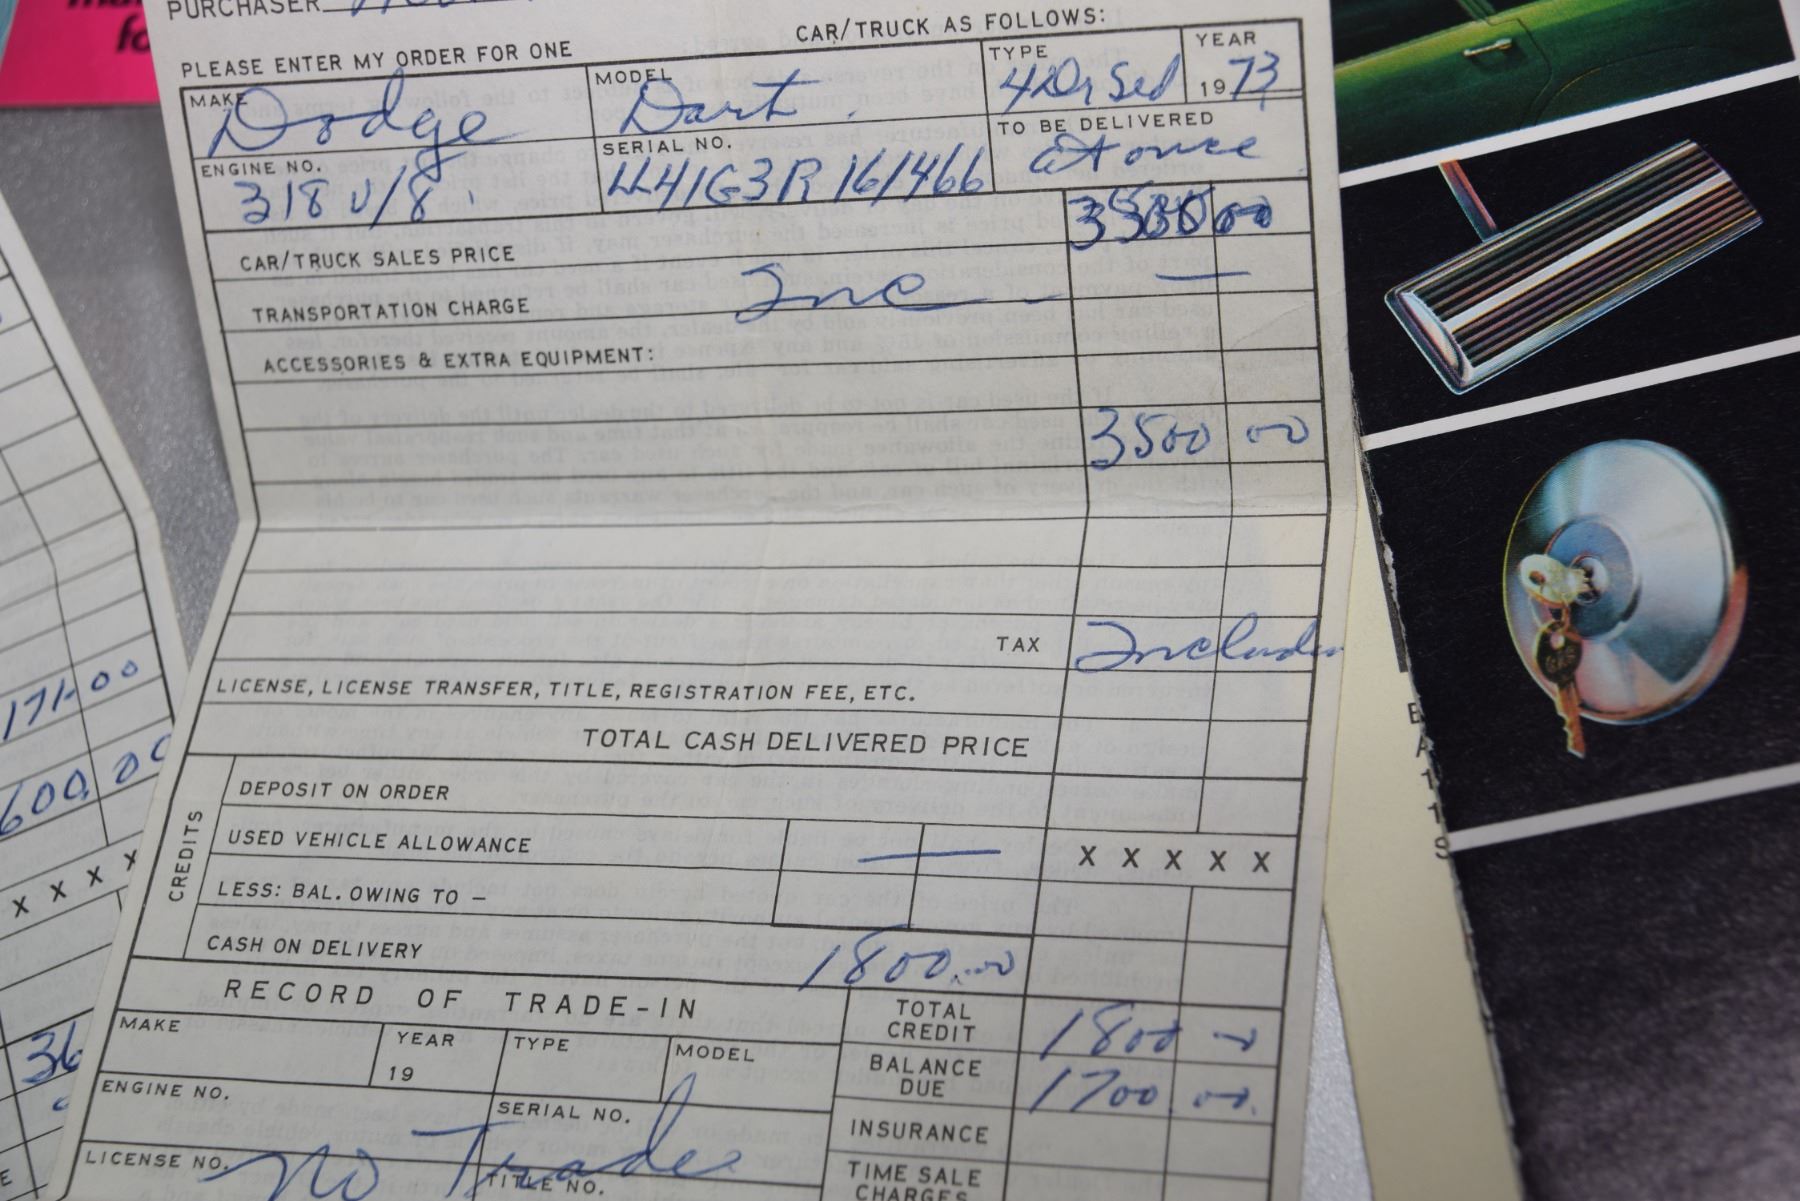 PURCHASER
CAR/TRUCK AS FOLLOWS:
PLEASE ENTER MY ORDER FOR ONE
MAKE Dodge
MODEL Dart
TYPE 4 Dr Sed
YEAR 1973
ENGINE NO. 318 V/8
SERIAL NO. LL41G3R161466
TO BE DELIVERED at once
CAR/TRUCK SALES PRICE 00
TRANSPORTATION CHARGE Inc —
ACCESSORIES & EXTRA EQUIPMENT:
3500 00
TAX Included
LICENSE, LICENSE TRANSFER, TITLE, REGISTRATION FEE, ETC.
TOTAL CASH DELIVERED PRICE
CREDITS
DEPOSIT ON ORDER
USED VEHICLE ALLOWANCE — X X X X X
LESS: BAL. OWING TO –
CASH ON DELIVERY 1800.00
RECORD OF TRADE-IN
TOTAL CREDIT 1800 00
MAKE
YEAR 19
TYPE
MODEL
BALANCE DUE 1700 00
ENGINE NO.
SERIAL NO.
INSURANCE
LICENSE NO. No Trade
TITLE NO.
TIME SALE
CHARGES
171-00
600.00
X X X X
36
fo